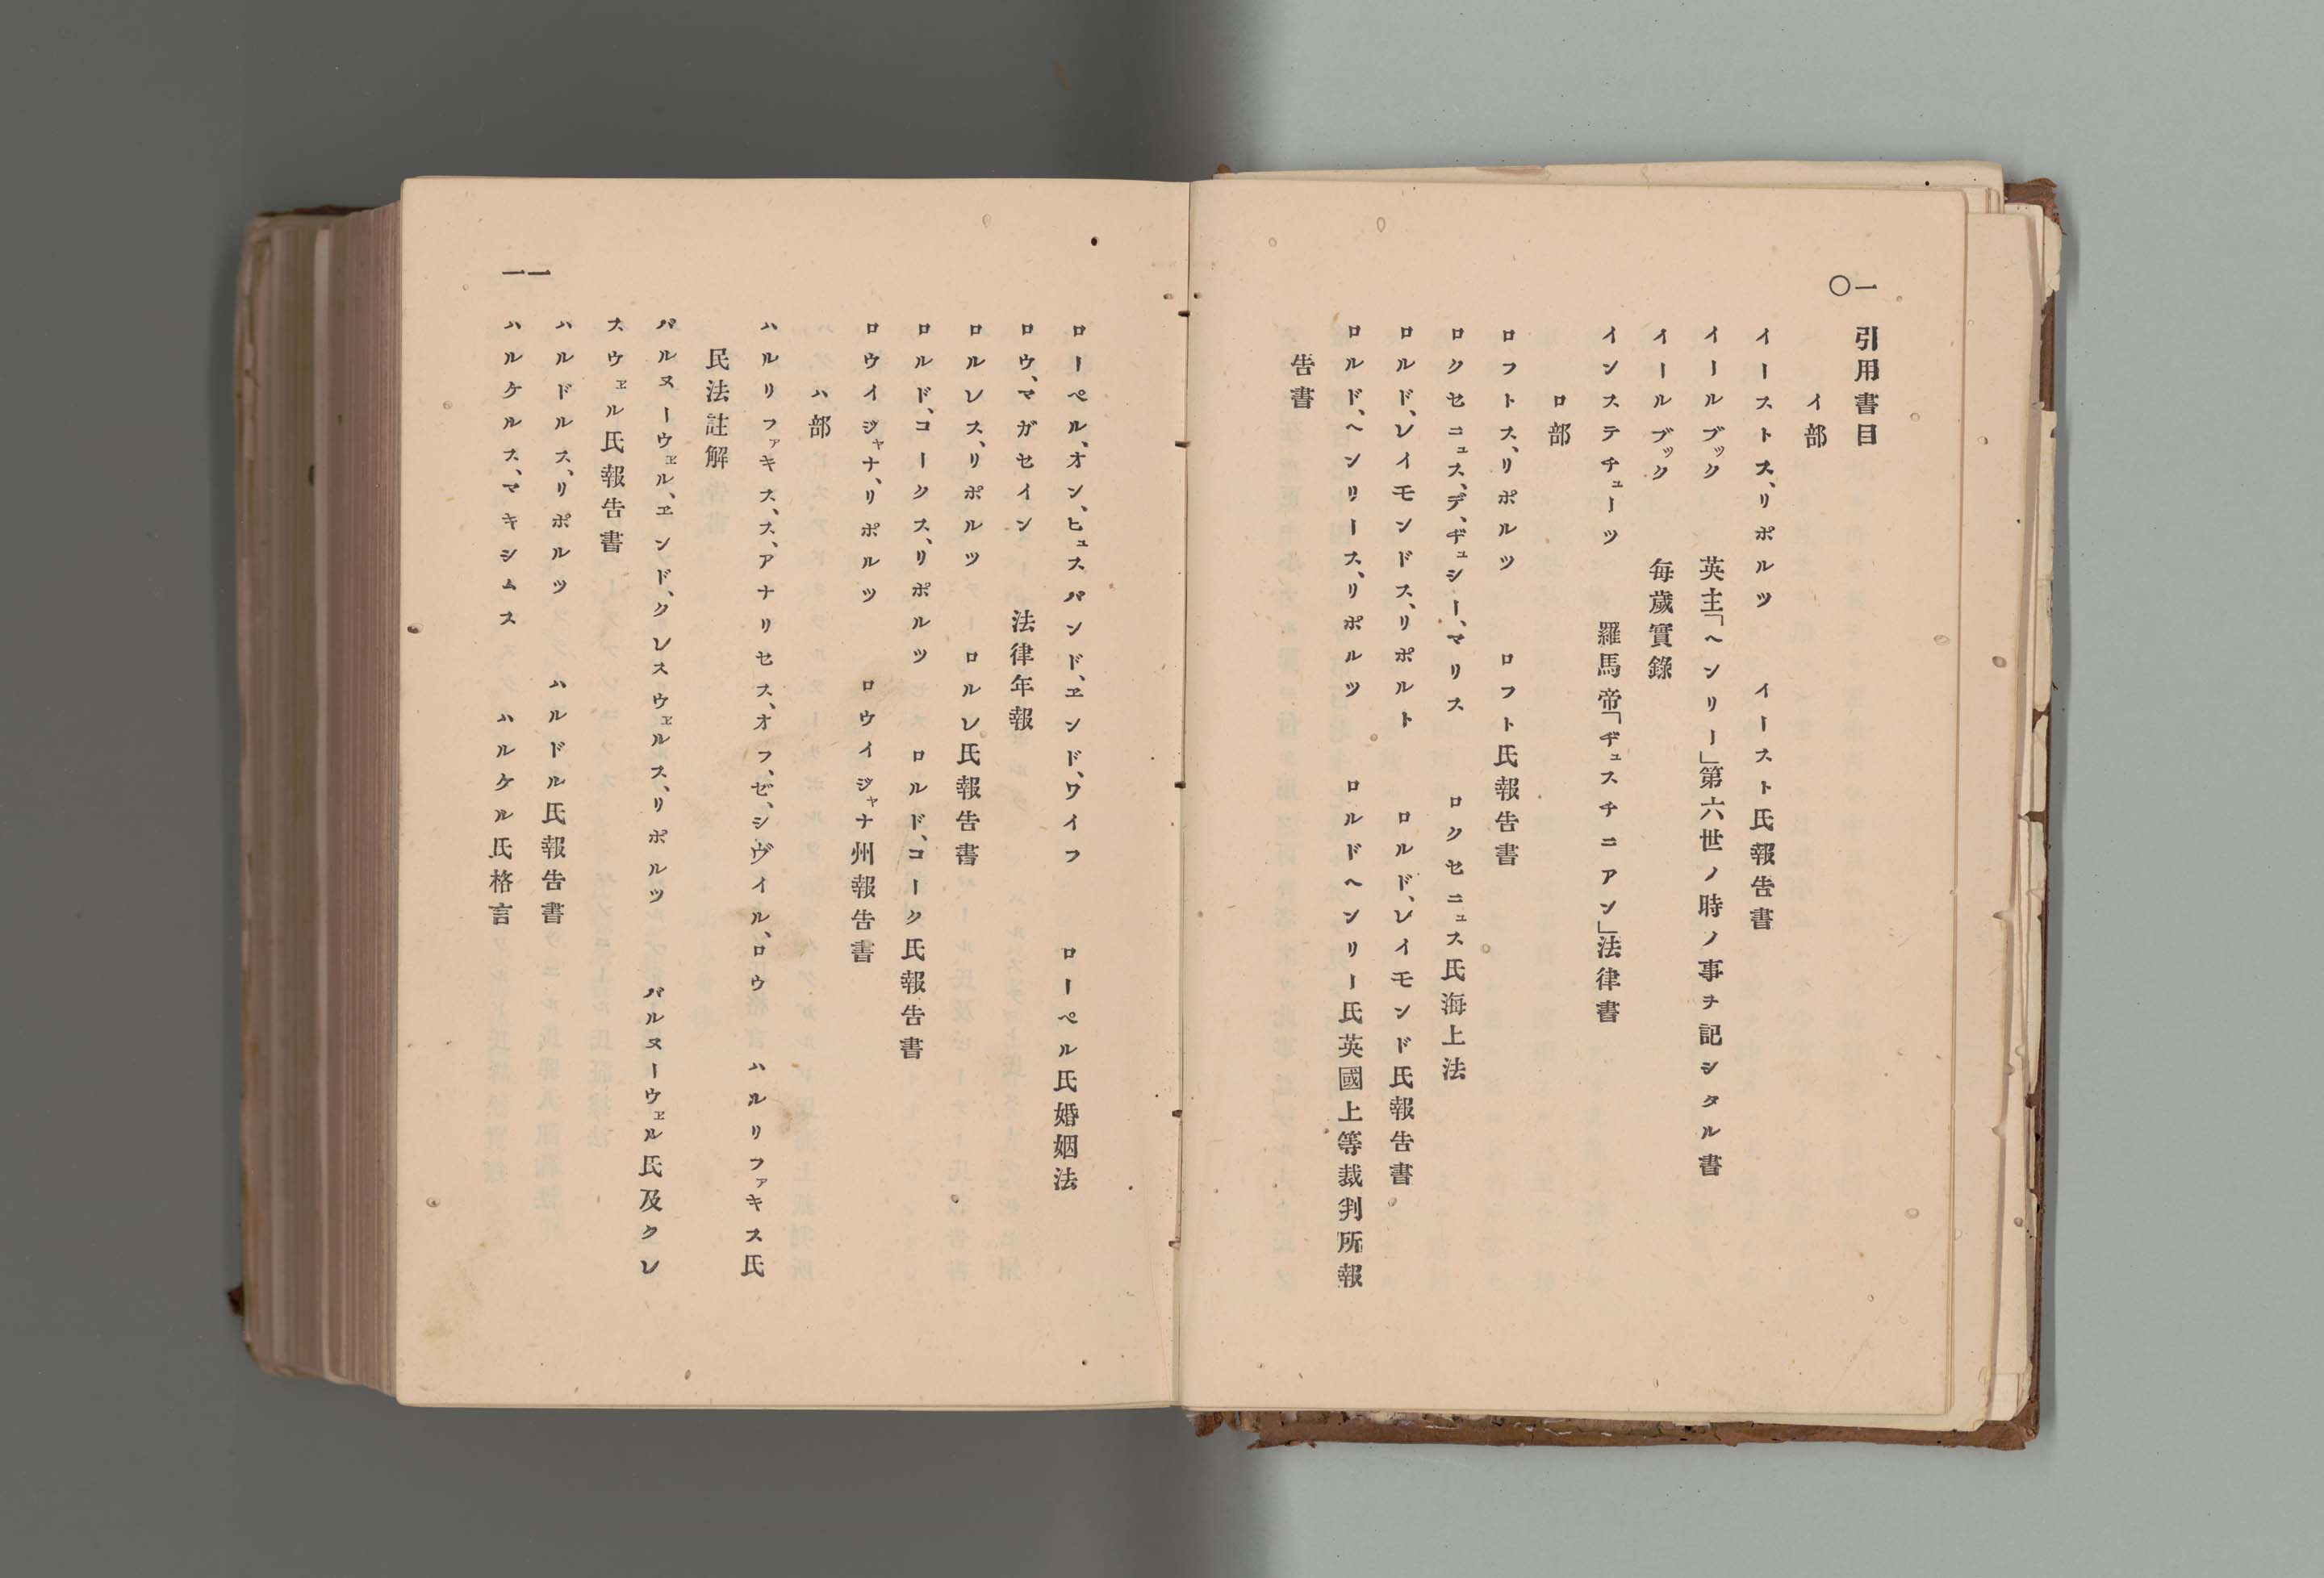 一〇
引用書目
イ部
イーストス、リポルツ　イースト氏報告書
イールブック　英主「ヘンリー」第六世ノ時ノ事ヲ記シタル書
イールブック　毎歲實錄
インステチューツ　羅馬帝「ヂュスチニアン」法律書
ロ部
ロフトス、リポルツ　ロフト氏報告書
ロクセニュス、デ、ヂュシー、マリス　ロクセニュス氏海上法
ロルド、レイモンドス、リポルト　ロルド、レイモンド氏報告書
ロルド、ヘンリース、リポルツ　ロルドヘンリー氏英國上等裁判所報
告書
ローペル、オン、ヒュスバンド、エンド、ワイフ　ローペル氏婚姻法
ロウ、マガセイン　法律年報
ロルレス、リポルツ　ロルレ氏報告書
ロルド、コークス、リポルツ　ロルド、コーク氏報告書
ロウイジャナ、リポルツ　ロウイジャナ州報告書
ハ部
ハルリファキス、ス、アナリセス、オフ、ゼ、シヴイル、ロウ　ハルリファキス氏
民法註解
バルヌーウェル、エンド、クレスウェルス、リポルツ　バルヌーウェル氏及クレ
スウェル氏報告書
ハルドルス、リポルツ　ハルドル氏報告書
ハルケルス、マキシムス　ハルケル氏格言
一一